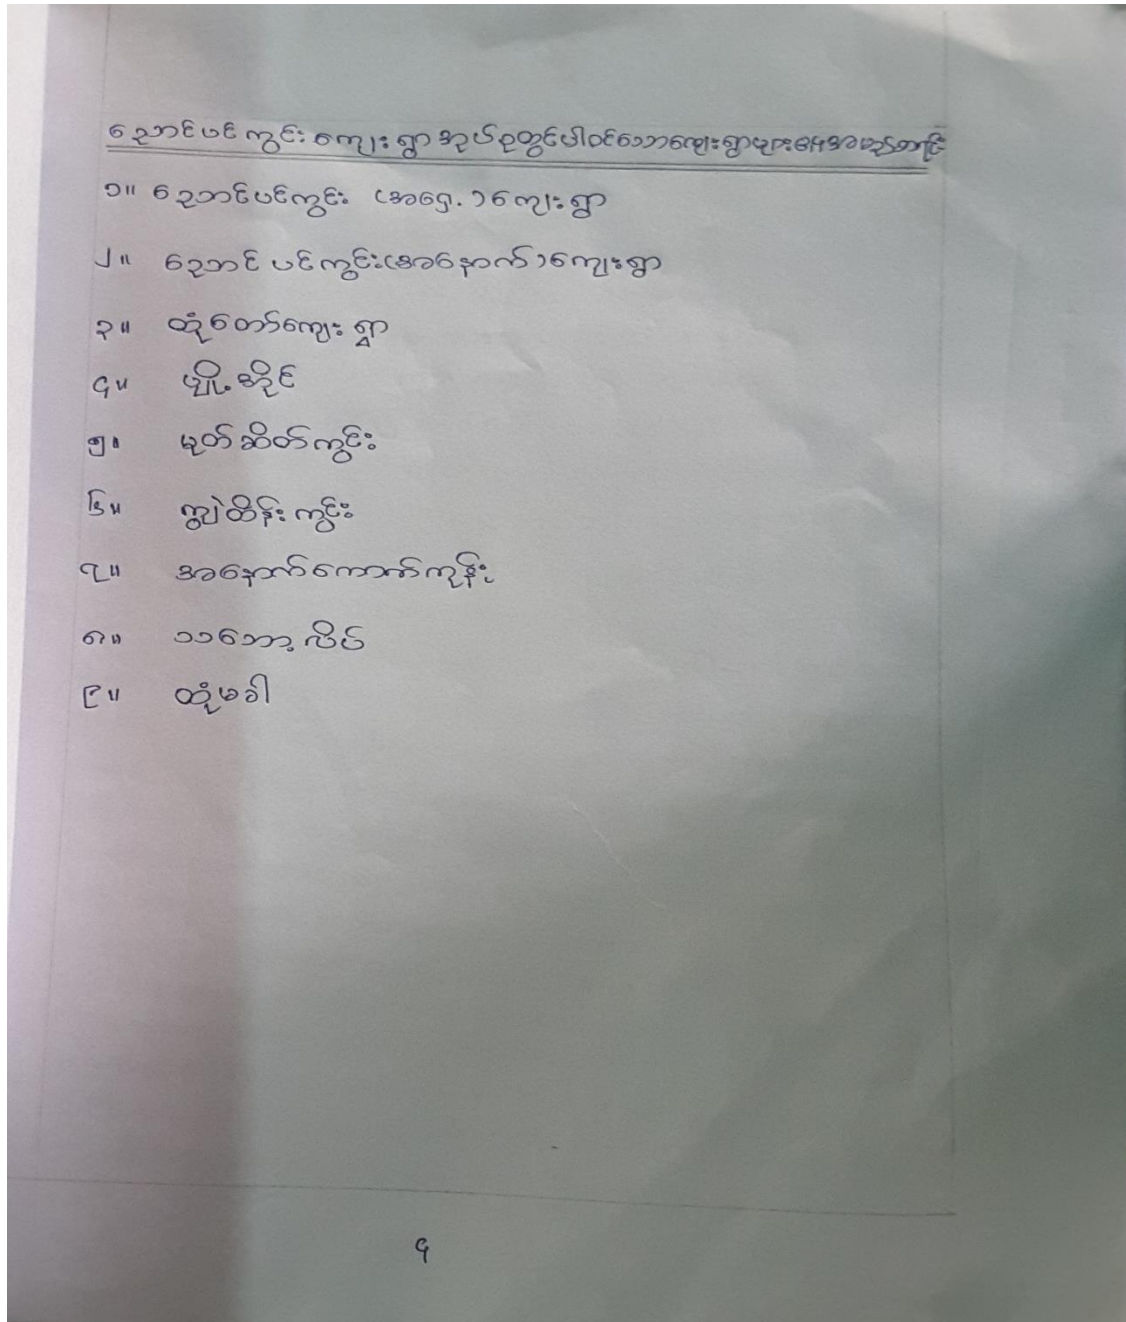 ညောင်ပင်ကွင်းကျေးရွာအုပ်စုတွင်ပါဝင်သောကျေးရွာများ၏အမည်စာရင်း
၁။ ညောင်ပင်ကွင်း (အရှေ့)ကျေးရွာ
၂။ ညောင်ပင်ကွင်း(အနောက်)ကျေးရွာ
၃။ ထုံတော်ကျေးရွာ
၄။ ပျို့အိုင်
၅။ မုတ်ဆိတ်ကွင်း
၆။ ကျွဲထိန်းကွင်း
၇။ အနောက်ကောက်ကုန်း
၈။ သဘော့လိပ်
၉။ ထုံမခါ
၄